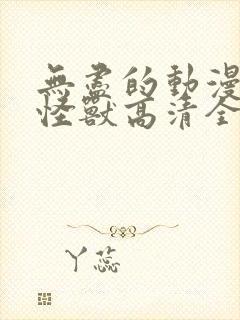 無盡的動漫
怪獸高清全
丫蕊